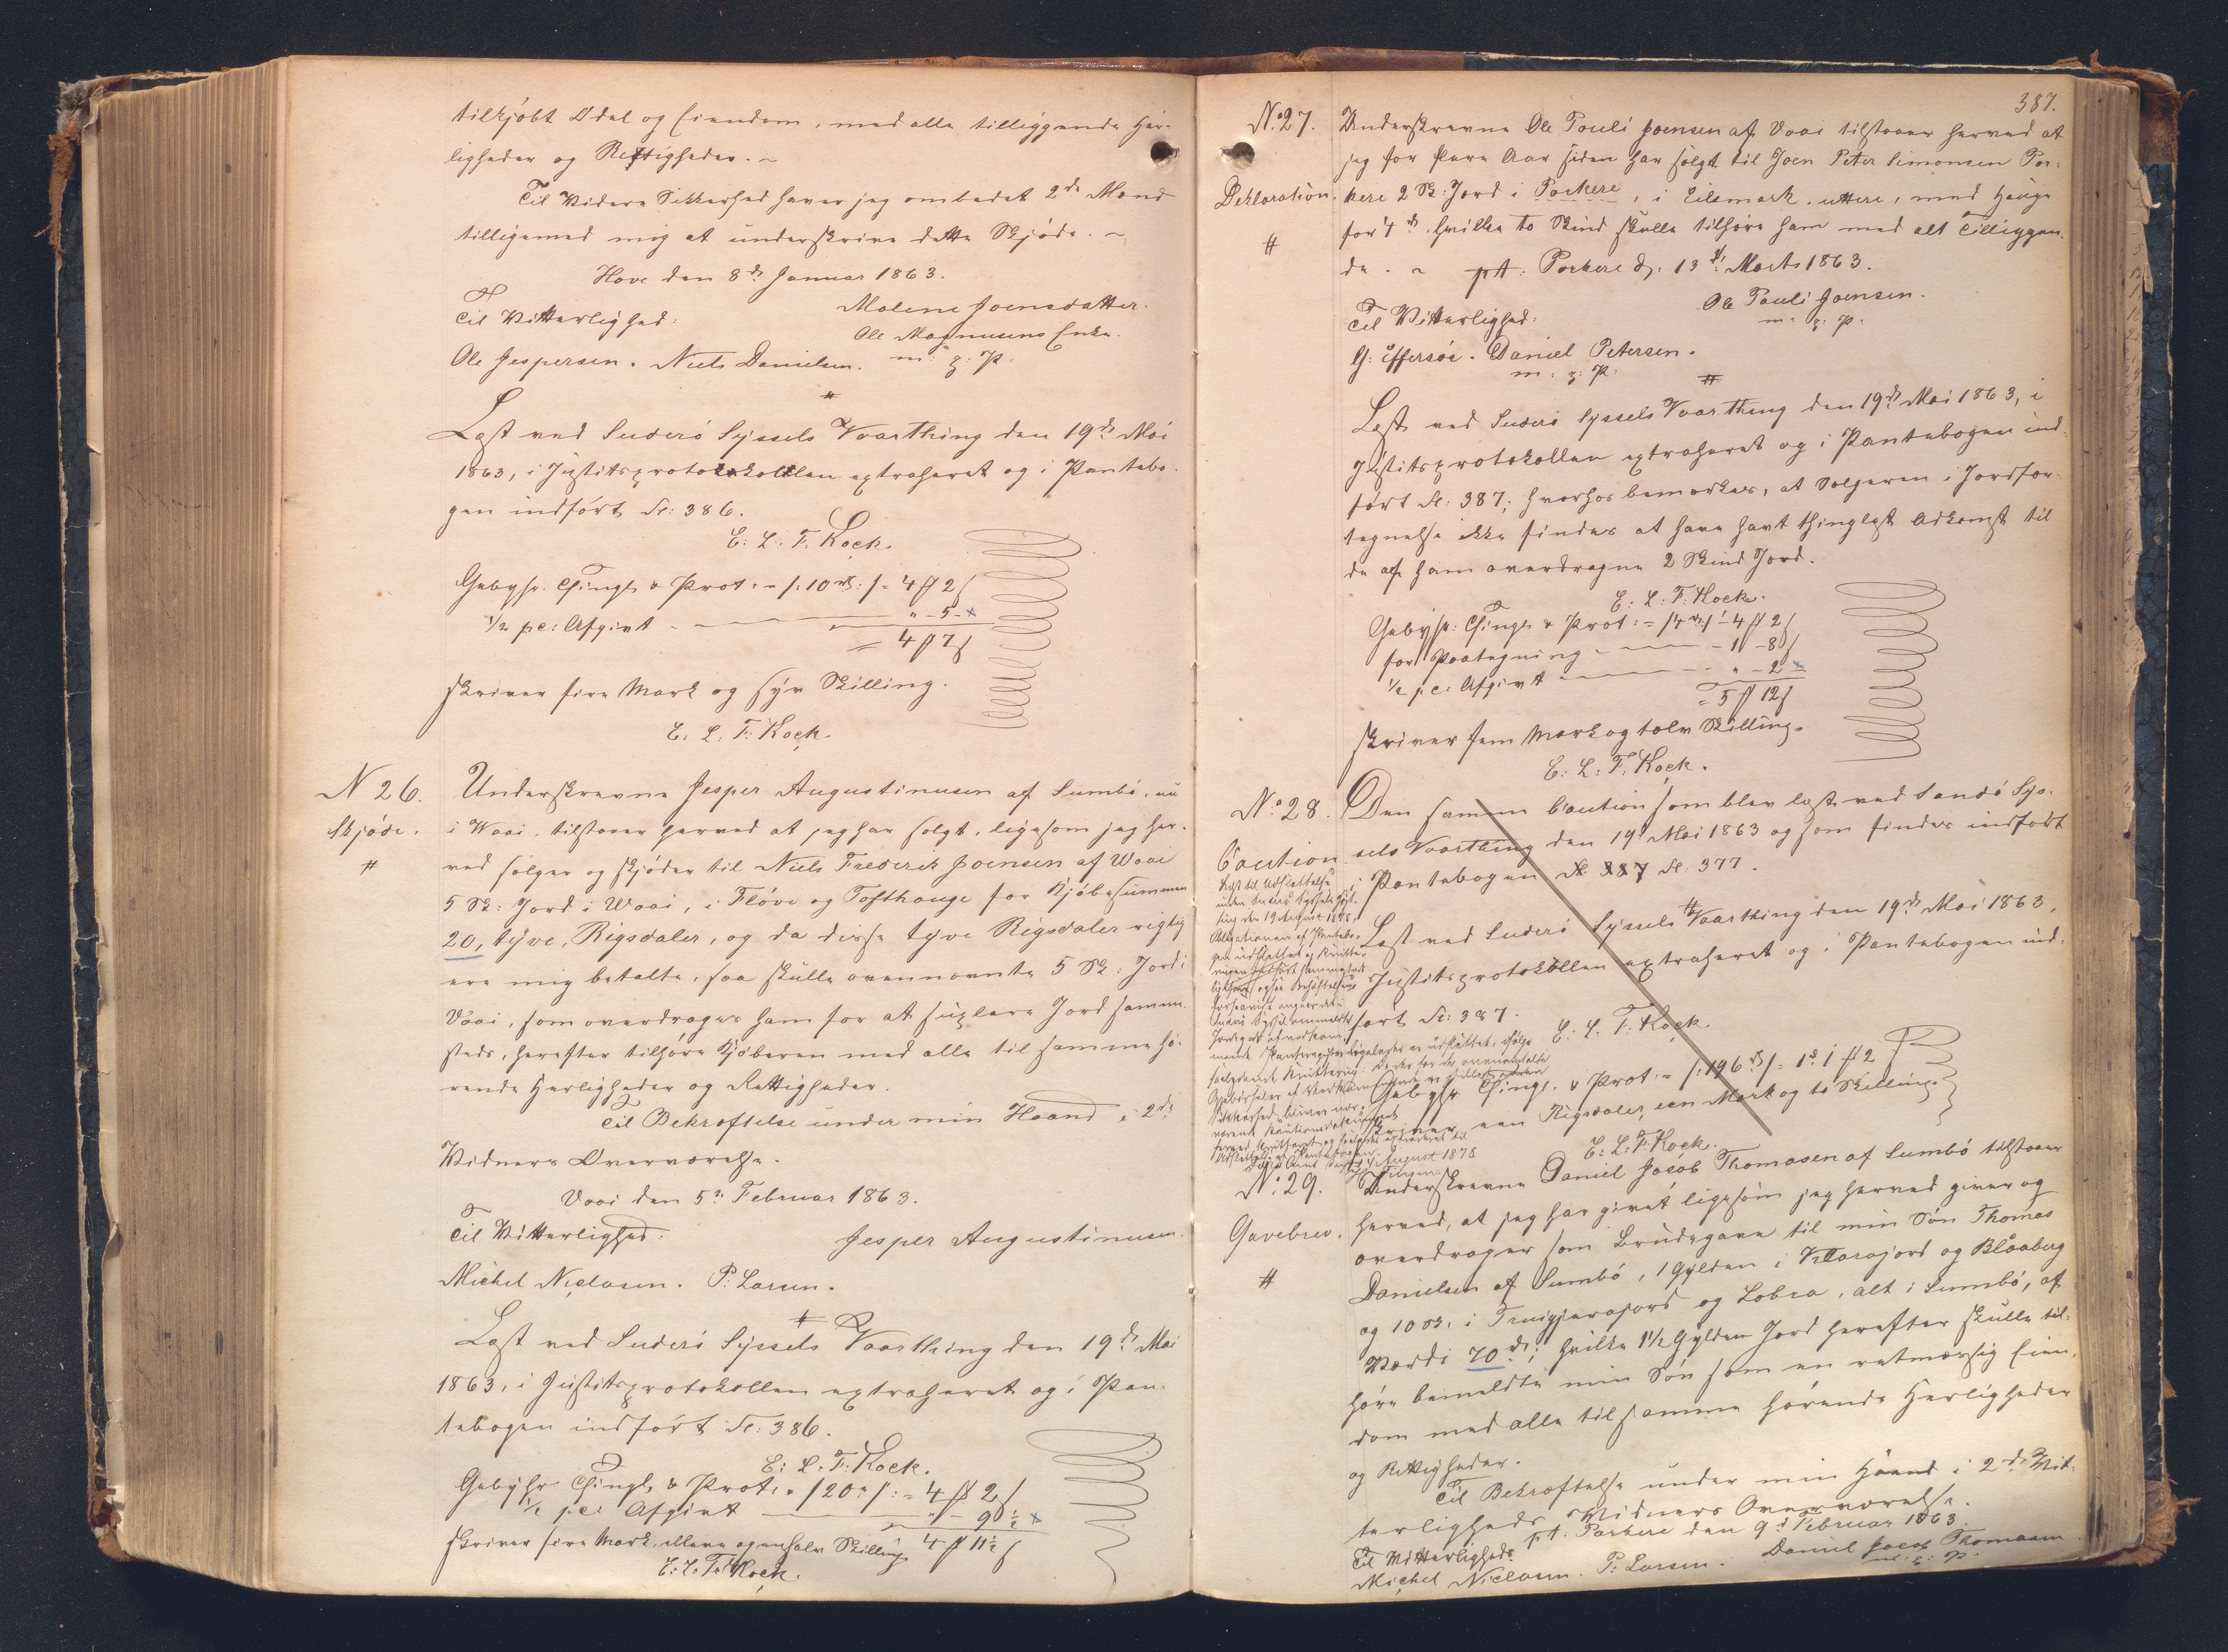 tilkjøbt Odel og Eiendom, med alle tilliggende Her-
ligheder og Rettigheder. ~
Til Videre Sikkerhed haver jeg ombedet 2de Mænd
tilligemed mig at underskrive dette Skjøde. ~
Hove den 8de Januar 1863.
Malene Joensdatter.
Til Vitterlighed:
Ole Magnusens Enke.
Ole Jespersen. Niels Danielsen. m: p: P.
#
Læst ved Suderö Syssels Vaarthing den 19de Mai
1863, i Justitsprotokollen extraheret og i Pantebo-
gen indført Fol: 386.
E: L: F: Kock.
Gebyhr. Thingl. & Prot. = /:10 rd:/ = 4 ß 2 s
1/2 pc: Afgivt " - 5 -
= 4 ß 7 s
skriver fire Mark og syv Skilling.
E: L: F: Kock.
N 26.
Skjøde.
#
Underskrevne Jesper Augustinusen af Sumbö, nu
i Waai, tilstaaer herved at jeg har solgt, ligesom jeg her-
ved sælger og skjøder til Niels Frederik Joensen af Waai
5 Sk: Jord i Waai, i Flöve og Tofthauge for Kjøbesummen
20, tyve, Rigsdaler, og da disse tyve Rigsdaler rigtig
ere mig betalte, saa skulle ovennævnte 5 Sk: Jord i
Vaai, som overdrages ham for at suplere Jord samme-
steds, herefter tilhøre Kjøberen med alle til samme hö-
rende Herligheder og Rettigheder.
Til Bekræftelse under min Haand i 2de
Vidners Overværelse.
Vaai den 5te Februar 1863.
Til Vitterlighed:
Jesper Augustinusen.
Michel Niclasen. P: Larsen.
#
Læst ved Suderö Syssels Vaarthing den 19de Mai
1863, i Justitsprotokollen extraheret og i Pan-
tebogen indført Fol: 386.
E: L: F: Kock.
Gebyhr. Thingl. & Prot. = /20:/ = 4 ß 2 s
1/2 pc: Afgivt " - 9 1/2
4 ß 11 1/2 s
skriver fire Mark, elleve og en halv Skilling
E: L: F: Kock.
387.
No 27.
Deklaration.
#
Underskrevne Ole Pouli Joensen af Vaai tilstaaer herved at
jeg for flere Aar siden har solgt til Joen Peter Simonsen Por-
kere 2 Sk: Jord i Porkere, i Eilsmark. uttere, med Hauge
for 4 rd, hvilke to Skind skulle tilhøre ham med alt Tilliggen-
de. ~ ptt: Porkere d. 13de Marts 1863.
Ole Pouli Joensen.
m: p: P.
Til Vitterlighed:
G: Effersöe. Daniel Petersen.
m: p: P:
#
Læst ved Suderö Syssels Vaarthing den 19de Mai 1863, i
Justitsprotokollen extraheret og i Pantebogen ind-
ført Fol: 387; hvorhos bemærkes, at Sælgeren i Jordfor-
tegnelse ikke findes at have havt thinglæst Adkomst til
de af ham overdragne 2 Skind Jord.
E: L: F: Kock.
Gebyhr. Thingl. & Prot: = /4 rd/ = 4 ß 2 s
for Paategning - 1 - 8 s
1/2 pc: Afgivt " - 2
= 5 ß 12 s
skriver fem Mark og tolv Skilling.
E: L: F: Kock.
No 28.
Caution
Den samme Caution som blev læst ved Sandö Sys-
sels Vaarthing den 19de Mai 1863 og som findes indført
i Pantebogen Fol: 377.
#
Læst ved Suderö Syssels Vaarthing den 19de Mai 1863,
i Justitsprotokollen extraheret og i Pantebogen ind-
ført Fol: 387.
E: L: F: Kock
Gebyhr Thingl. & Prot = /:196 rd/ = 1 rd 1 ß 2 s
skriver een Rigsdaler, een Mark og to Skilling
E: L: F: Kock.
Læst til Udslettelse
August 1878
No: 29.
Gavebrev.
#
Underskrevne Daniel Jacob Thomasen af Sumbö tilstaaer
herved, at jeg har givet ligesom jeg herved giver og
overdrager som Brudegave til min Søn Thomas
Danielsen af Sumbö, 1 Gylden i Klarajord og Blåaberg
og 10 Sk. i Truigjerajord og Lobra, alt i Sumbö, af
Værdi 70 rd; hvilke 1 1/2 Gylden Jord herefter skulle til-
høre bemeldte min Søn som en retmæssig Eien-
dom med alle til samme hørende Herligheder
og Rettigheder.
Til Bekræftelse under min Haand i 2de Vit-
terligheds Vidners Overværelse.
pt: Porkere den 9de Februar 1863.
Til Vitterlighed:
Daniel Jacob Thomasen
m: p: P.
Michel Niclasen. P: Larsen.